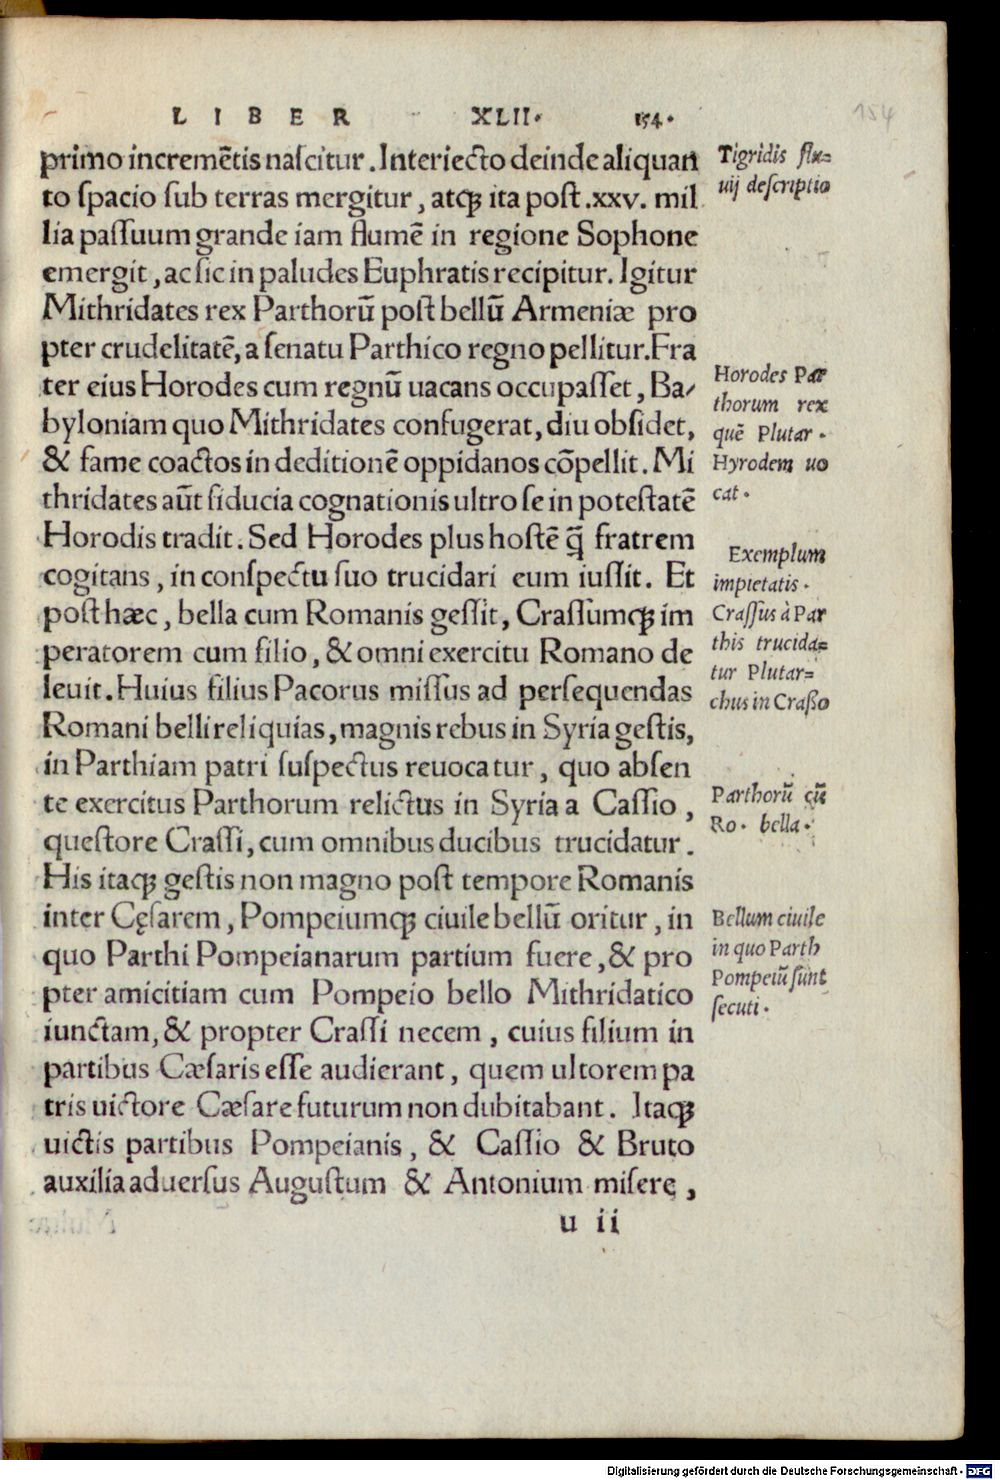 LIBER XLII. 154.
154
primo incremētis nascitur. Interiecto deinde aliquan
to spacio sub terras mergitur, atqꝫ ita post .xxv. mil
lia passuum grande iam flumē in regione Sophone
emergit, ac sic in paludes Euphratis recipitur. Igitur
Mithridates rex Parthorū post bellū Armeniæ pro
pter crudelitatē, a senatu Parthico regno pellitur. Fra
ter eius Horodes cum regnū uacans occupasset, Ba/
byloniam quo Mithridates confugerat, diu obsidet,
& fame coactos in deditionē oppidanos cōpellit. Mi
thridates aūt fiducia cognationis ultro se in potestatē
Horodis tradit. Sed Horodes plus hostē q̄ fratrem
cogitans, in conspectu suo trucidari eum iussit. Et
post hæc, bella cum Romanis gessit, Crassumqꝫ im
peratorem cum filio, & omni exercitu Romano de
leuit. Huius filius Pacorus missus ad persequendas
Romani belli reliquias, magnis rebus in Syria gestis,
in Parthiam patri suspectus reuocatur, quo absen
te exercitus Parthorum relictus in Syria a Cassio,
questore Crassi, cum omnibus ducibus trucidatur.
His itaqꝫ gestis non magno post tempore Romanis
inter Cęsarem, Pompeiumqꝫ ciuile bellū oritur, in
quo Parthi Pompeianarum partium fuere, & pro
pter amicitiam cum Pompeio bello Mithridatico
iunctam, & propter Crassi necem, cuius filium in
partibus Cæsaris esse audierant, quem ultorem pa
tris uictore Cæsare futurum non dubitabant. Itaqꝫ
uictis partibus Pompeianis, & Cassio & Bruto
auxilia aduersus Augustum & Antonium miserę,
u ii
Tigridis flu=
uij descriptio
Horodes Par
thorum rex
quē Plutar.
Hyrodem uo
cat.
Exemplum
impietatis.
Crassus à Par
this trucida=
tur Plutar=
chus in Crasso
Parthorū cū
Ro. bella.
Bellum ciuile
in quo Parth
Pompeiū sunt
secuti.
Digitalisierung gefördert durch die Deutsche Forschungsgemeinschaft - DFG